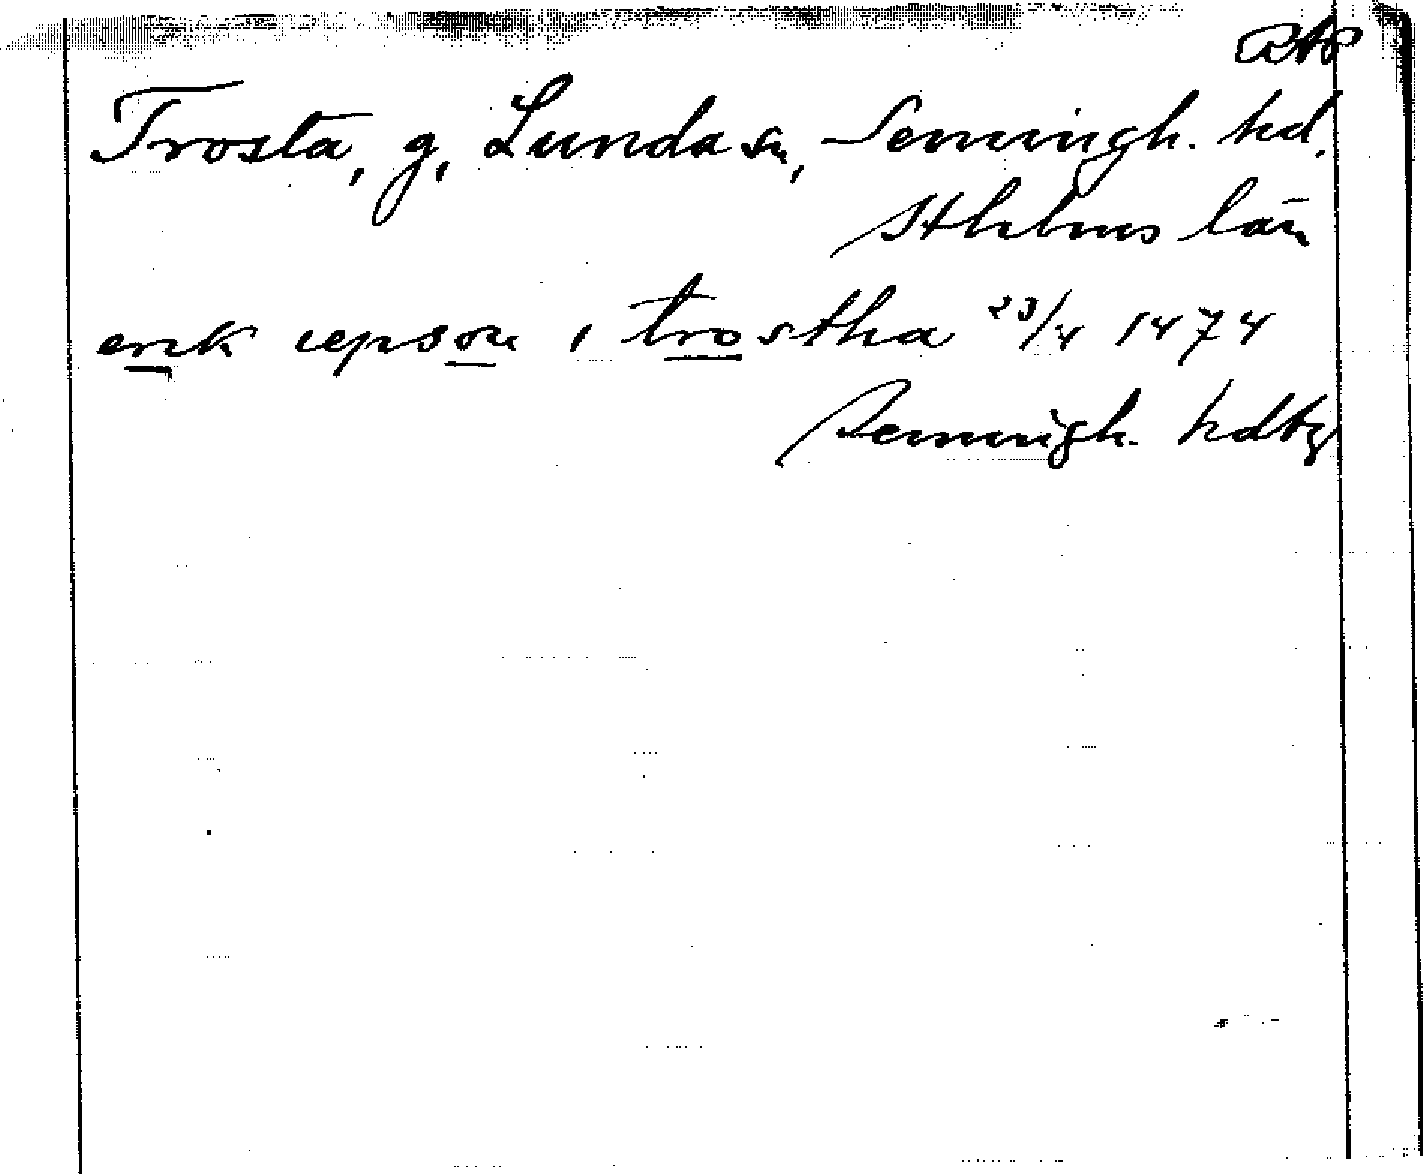 RAP
Trosta, g, Lunda sn, Seminghs. hd.
Sthlms län
erik iepson i trostha 23/4 1474
Semingh. hdtg